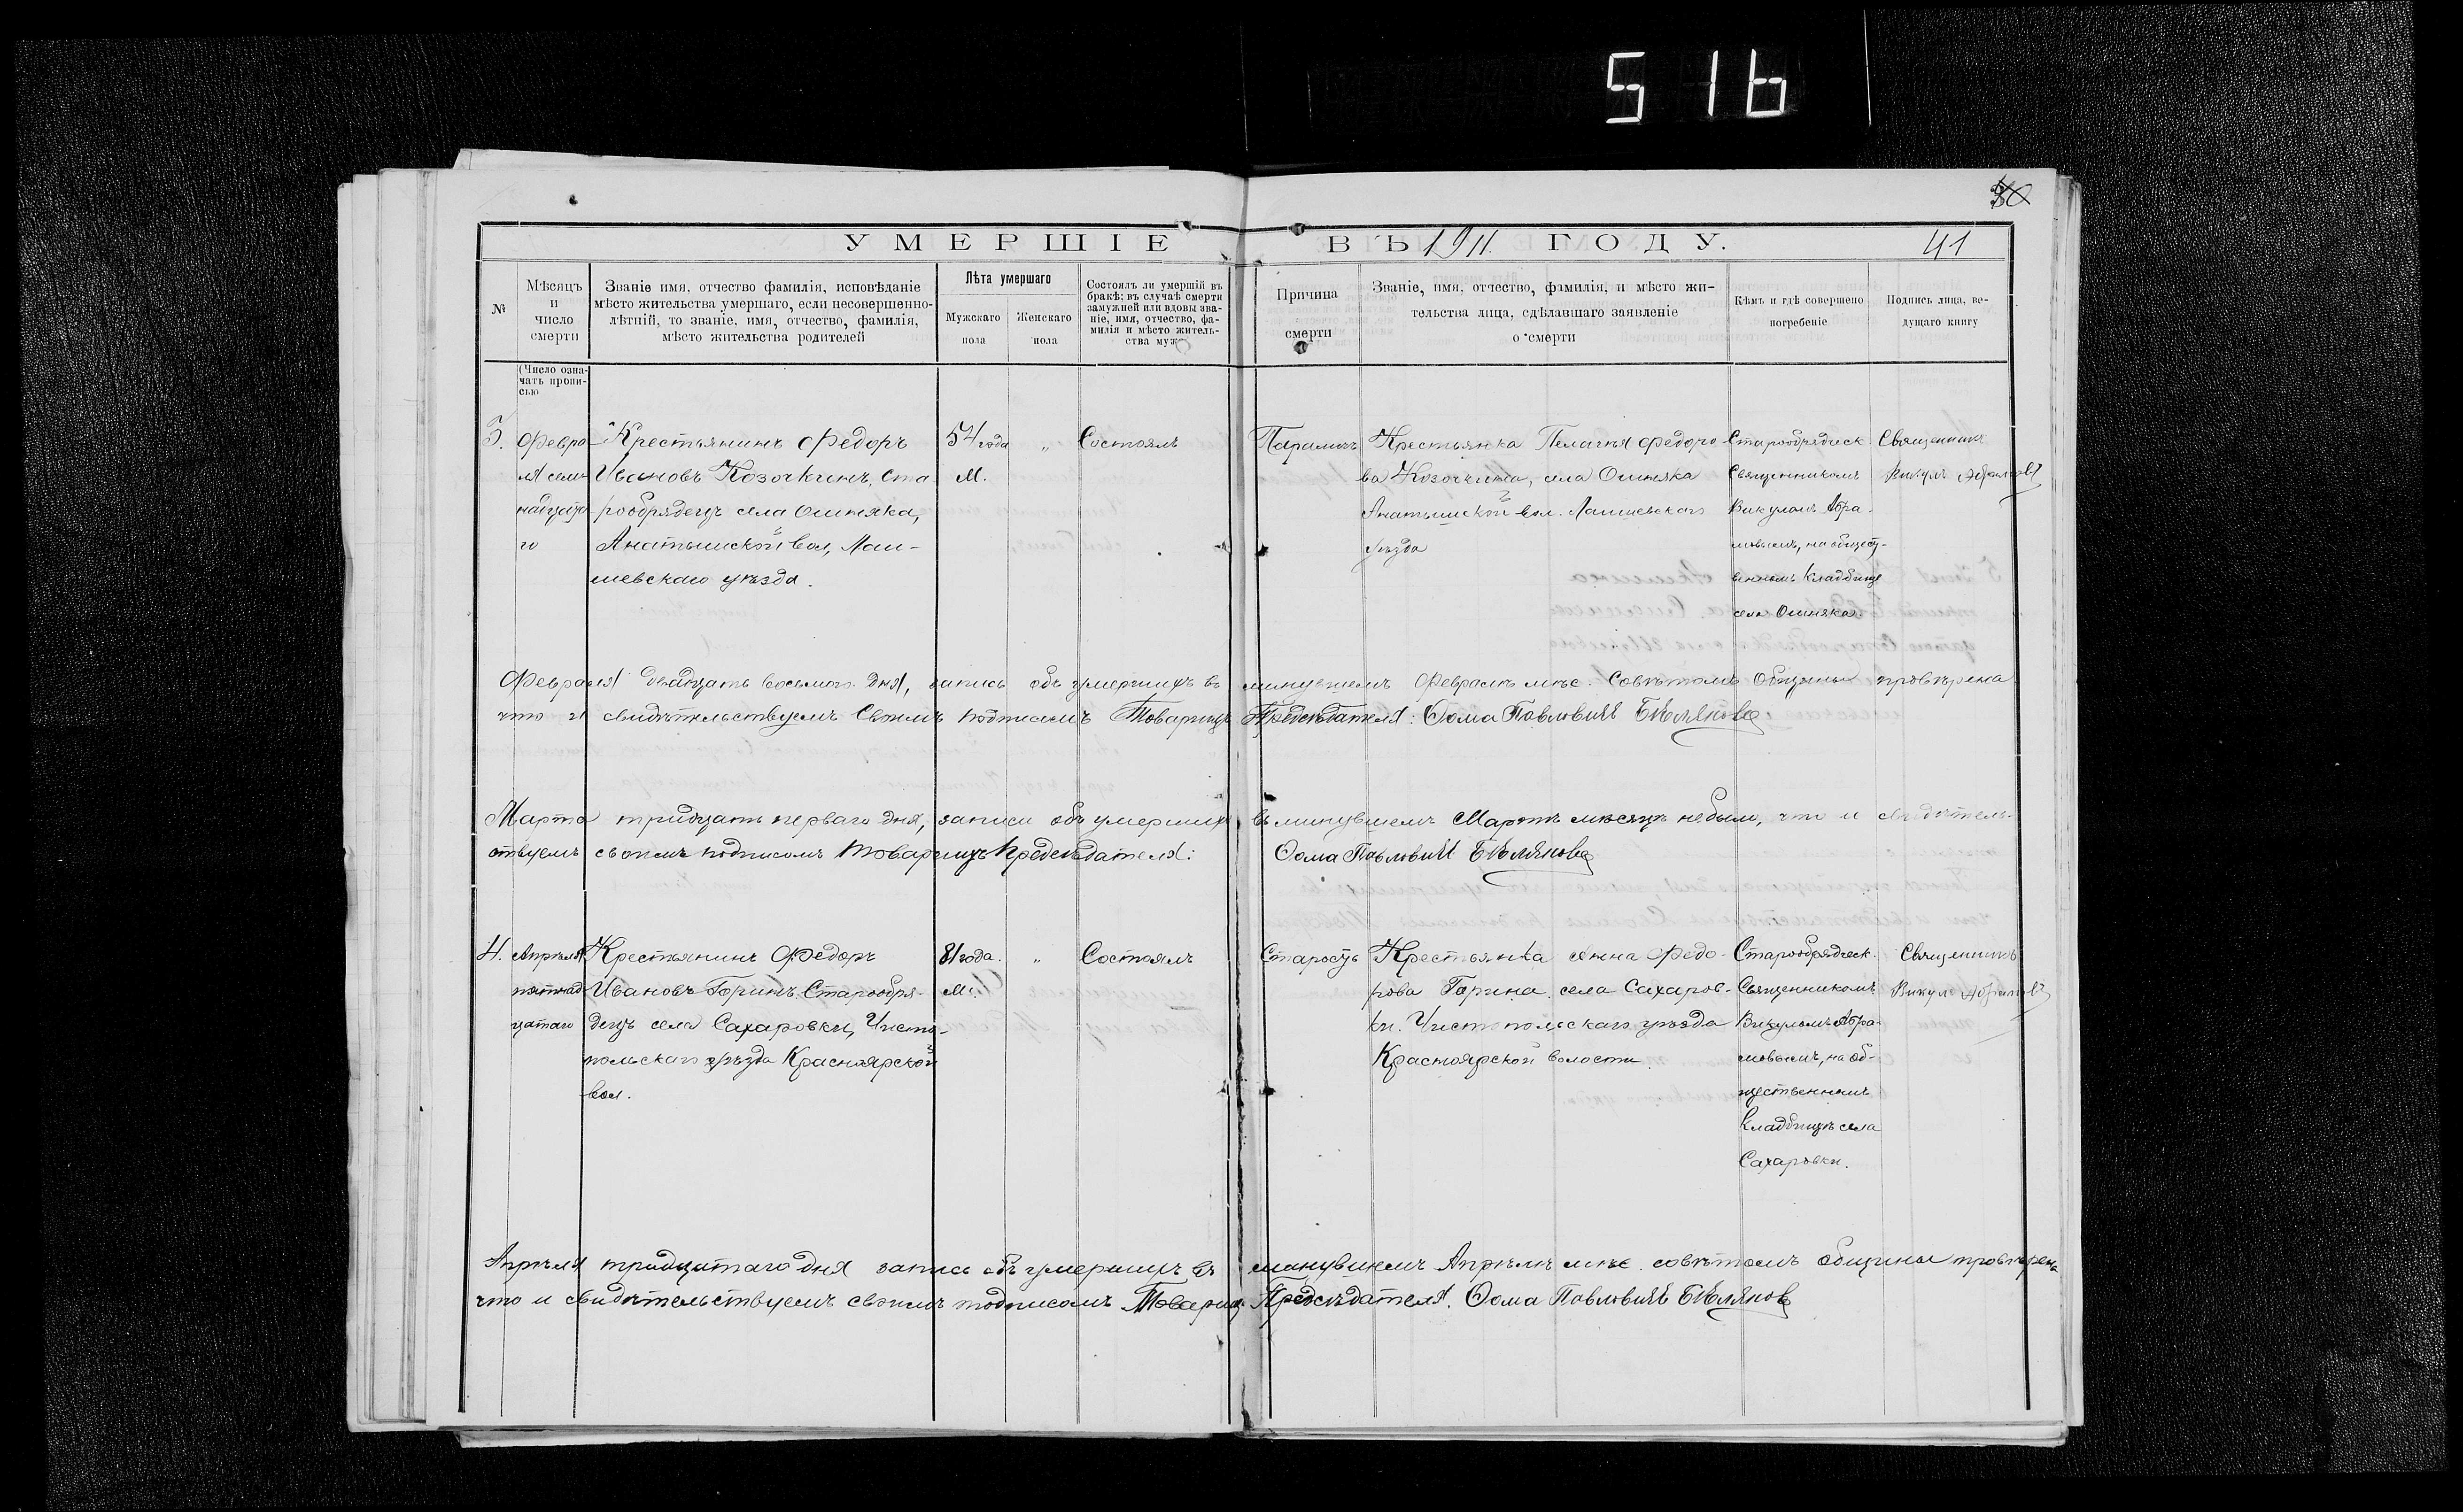 516
40
УМЕРШІЕ ВЪ 1911 ГОДУ.
41
№
Мѣсяцъ
и
число
смерти
Званіе имя, отчество фамилія, исповѣданіе
мѣсто жительства умершаго, если несовершенно-
лѣтній, то званіе, имя, отчество, фамилія,
мѣсто жительства родителей
Лѣта умершаго
Мужскаго
пола
Женскаго
пола
Состоялъ ли умершій въ
бракѣ; въ случаѣ смерти
замужней или вдовы зва-
ніе, имя, отчество, фа-
милія и мѣсто житель-
ства мужа
Причина
смерти
Званіе, имя, отчество, фамилія, и мѣсто жи-
тельства лица, сдѣлавшаго заявленіе
о смерти
Кѣмъ и гдѣ совершено
погребеніе
Подпись лица, ве-
дущаго книгу
(Число озна-
чать пропи-
сью
3.
Февра
ля сем-
надцата
го
Крестьянинъ Федоръ
Ивановъ Козочкинъ, ста
рообрядецъ села Ошняка,
Анатышской вол, Лаи-
шевскаго уѣзда.
54 года
М.
"
Состоялъ
Параличъ
Крестьянка Пелагея Федоро
ва Козочкина, села Ошняка
Анатышской вол. Лаишевскаго
уѣзда
Старообрядческ
Священникомъ
Викуломъ Абра-
мовымъ, на общест-
венномъ кладбище
села Ошняка.
Священникъ
Викулъ Абрамовъ
Февраля двадцать восьмого дня, запись объ умершихъ въ минувшемъ Февралѣ мѣс. Совѣтомъ Общины провѣрена
что и свидѣтельствуемъ своимъ подписомъ Товарищъ Предсѣдателя: Ѳома Павловичъ Бѣляновъ
Марта тридцать перваго дня, записи объ умершихъ въ минувшемъ Мартѣ мѣсяцѣ не было, что и свидѣтель-
ствуемъ своимъ подписомъ Товарищъ Предсѣдателя: Ѳома Павловичъ Бѣляновъ
4.
Апрѣля
пятнад
цатаго
Крестьянинъ Федоръ
Ивановъ Горинъ, Старообря-
децъ села Сахаровки, Чисто-
польскаго уѣзда Красноярской
вол.
81 года.
М.
"
Состоялъ
Старость
Крестьянка Анна Федо-
рова Горина. села Сахаров-
ки. Чистопольскаго уѣзда
Красноярской волости.
Старообрядческ.
Священникомъ
Викуломъ Абра-
мовымъ, на об-
щественномъ
кладбищѣ села
Сахаровки.
Священникъ
Викулъ Абрамовъ
Апрѣля тридцатаго дня запись объ умершихъ въ минувшемъ Апрѣлѣ мѣс. совѣтомъ общины провѣрена
что и свидѣтельствуемъ своимъ подписомъ Товарищ. Предсѣдателя. Ѳома Павловичъ Бѣляновъ